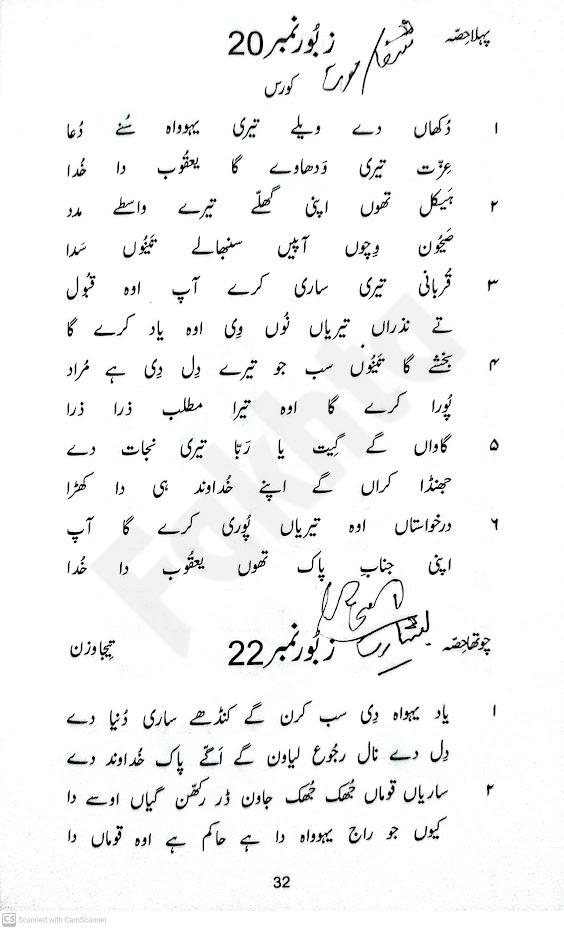 پہلا حِصّہ
زبُور نمبر 20
کورس
۱ دُکھاں دے ویلے تیری یہوواہ سُنے دُعا
عِزّت تیری وَدھاوے گا یعقُوب دا خُدا
۲ ہَیکل تھوں اپنی گھلّے تیرے واسطے مدد
صَیُون وِچوں آپیں سنبھالے تَینُوں سَدا
۳ قُربانی تیری ساری کرے آپ اوہ قبُول
تے نذراں تیریاں نُوں وِی اوہ یاد کرے گا
۴ بخشے گا تَینُوں سب جو تیرے دِل دِی ہے مُراد
پُورا کرے گا اوہ تیرا مطلب ذرا ذرا
۵ گاواں گے گِیت یا رَبّا تیری نجات دے
جھنڈا کراں گے اپنے خُداوند ہی دا کھڑا
۶ درخواستاں اوہ تیریاں پُوری کرے گا آپ
اپنی جنابِ پاک تھوں یعقُوب دا خُدا
چوتھا حِصّہ
زبُور نمبر 22
تِیجا وزن
۱ یاد یہواہ دِی سب کرن گے کنڈھے ساری دُنیا دے
دِل دے نال رجُوع لیاون گے اَگّے پاک خُداوند دے
۲ ساریاں قوماں جُھک جُھک جاون ڈر رکھّن گیاں اوسے دا
کیوں جو راج یہوواہ دا ہے حاکم ہے اوہ قوماں دا
32
Fakhta
CS Scanned with CamScanner